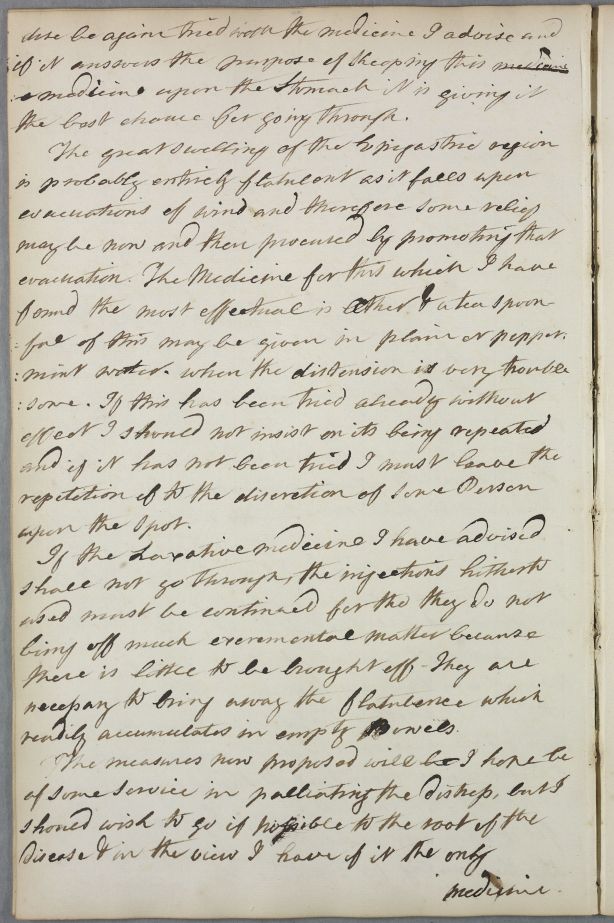 dose be again tried with the medicine I advise and
if it answers the purpose of keeping this medicine
a medicine upon the Stomach it is giving it
the best chance for going through.
The great swelling of the Epigastric region
is probably entirely flatulent as it falls upon
evacuations of wind and therefore some relief
may be now and then procured by promoting that
evacuation. The Medicine for this which I have
found the most effectual is Æther & a tea spoon-
:ful of this may be given in plain or pepper:
:mint water. when the distension is very trouble
:some. If this has been tried already without
effect I should not insist on its being repeated
and if it has not been tried I must leave the
repetition of to the discretion of some Person
upon the Spot.
If the Laxative medicine I have advised
shall not go through, the injections hitherto
used must be continued for tho they do not
bring off much excremental matter because
there is little to be brought off - They are
necessary to bring away the flatulence which
readily accumulates in empty Bowels.
The measures now proposed will be I hope be
of some service in palliating the distress, but I
should wish to go if possible to the root of the
Disease & in the view I have of it the only
medicine.